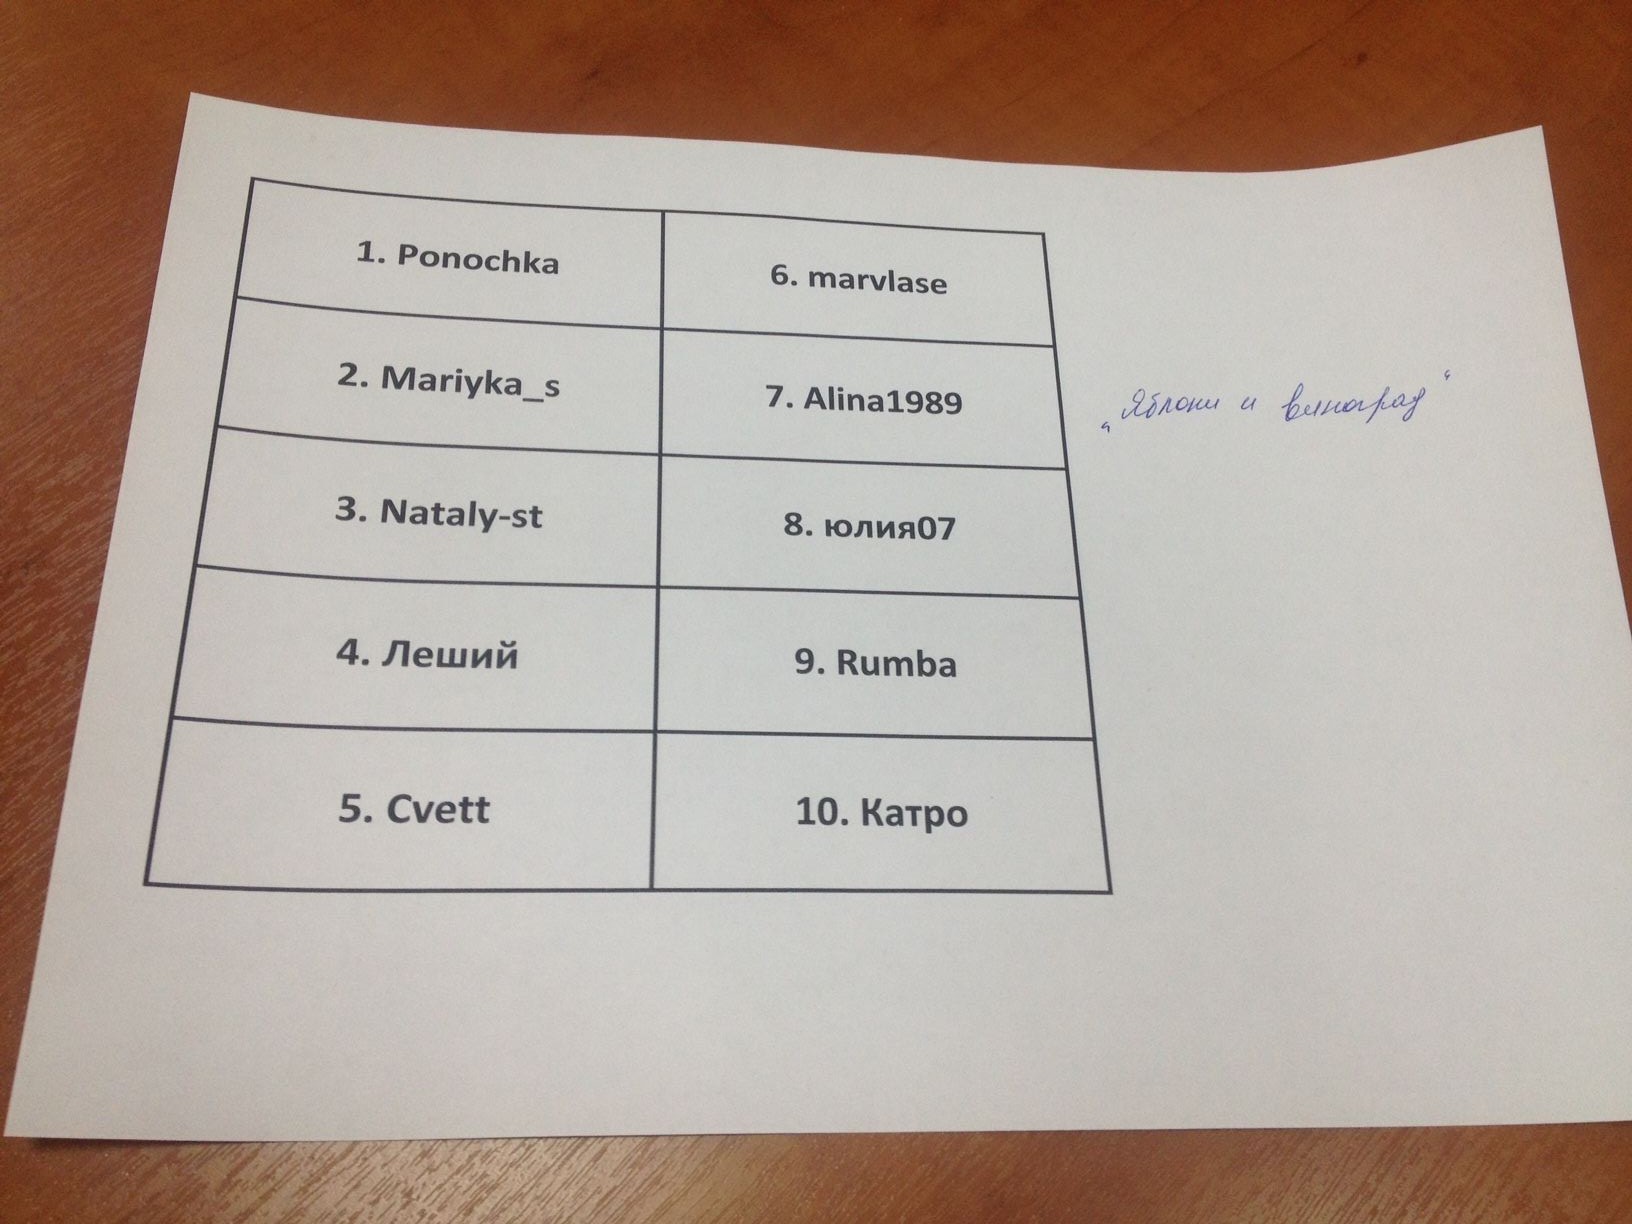 1. Ponochka
6. marvlase
2. Mariyka_s
7. Alina1989
3. Nataly-st
8. юлия07
4. Леший
9. Rumba
5. Cvett
10. Катро
„Яблоки и виноград“